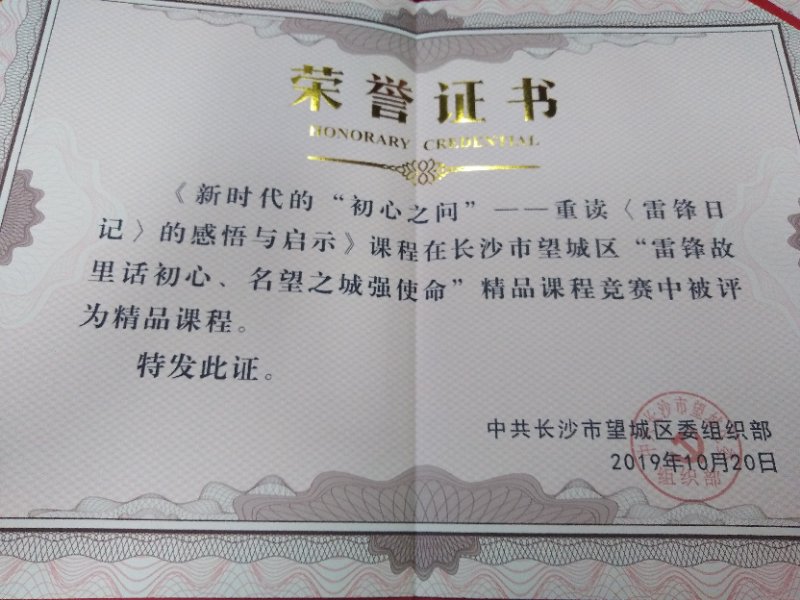 荣誉证书
HONORARY CREDENTIAL
《新时代的“初心之问”——重读〈雷锋日
记〉的感悟与启示》课程在长沙市望城区“雷锋故
里话初心、名望之城强使命”精品课程竞赛中被评
为精品课程。
特发此证。
中共长沙市望城区委组织部
2019年10月20日
组织部